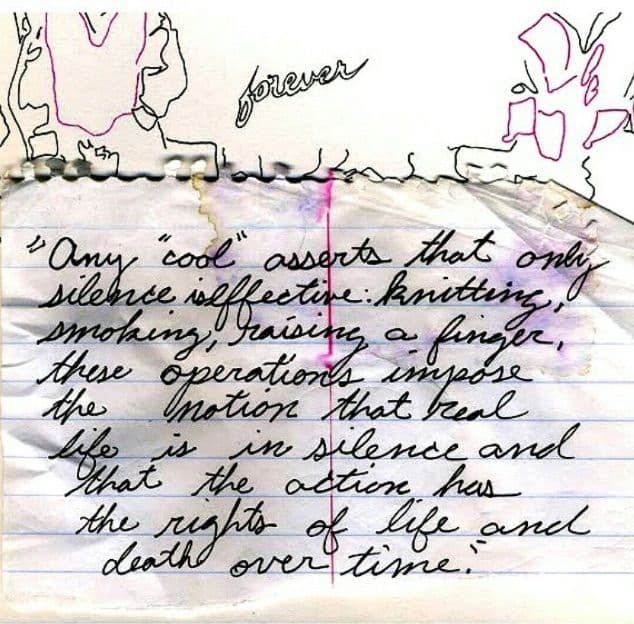 forever
"Any "cool" asserts that only
silence is effective: knitting,
smoking, raising a finger,
these operations impose
the notion that real
life is in silence and
that the action has
the rights of life and
death over time."